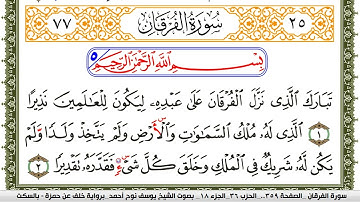 ٧٧ سُورَةُ الْفُرْقَانِ ٢٥
بِسْمِ اللَّهِ الرَّحْمَٰنِ الرَّحِيمِ ٥
تَبَارَكَ الَّذِى نَزَّلَ الْفُرْقَانَ عَلَىٰ عَبْدِهِ لِيَكُونَ لِلْعَالَمِينَ نَذِيرًا
١ الَّذِى لَهُ مُلْكُ السَّمَٰوَٰتِ وَالْأَرْضِ وَلَمْ يَتَّخِذْ وَلَدًا وَلَمْ
يَكُن لَّهُ شَرِيكٌ فِى الْمُلْكِ وَخَلَقَ كُلَّ شَىْءٍ فَقَدَّرَهُ تَقْدِيرًا ٢
سورة الفرقان . الصفحة ٣٥٩... الحزب ٣٦.. الجزء ١٨ . بصوت الشيخ يوسف نوح أحمد . برواية خلف عن حمزة - بالسكت